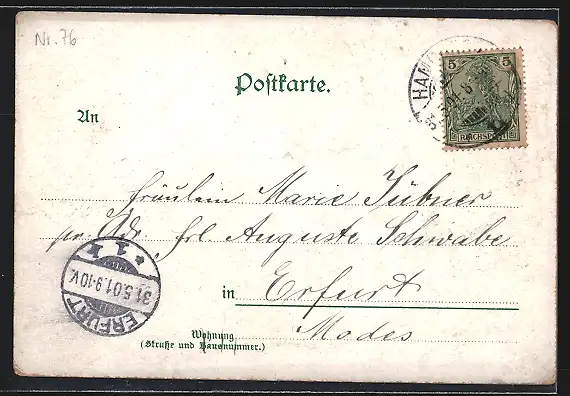 Nr. 76
Postkarte.
An
5 5
REICHSPOST
HAM
Fräulein Marie Tübner
pr. Adr. Frl Auguste Schwabe
in Erfurt
Modes
ERFURT
* 1 I
31.5.01.9-10V.
Wohnung
(Straße und Hausnummer.)